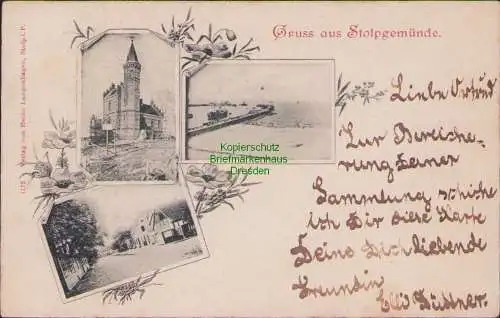 Gruss aus Stolpgemünde.
Liebe Ortrud
Zur Bereiche-
rung Deiner
Sammlung schicke
ich Dir diese Karte
Deine Dich liebende
Freundin
Elli Büttner.
Kopierschutz
Briefmarkenhaus
Dresden
Verlag von
Stolp i. P.